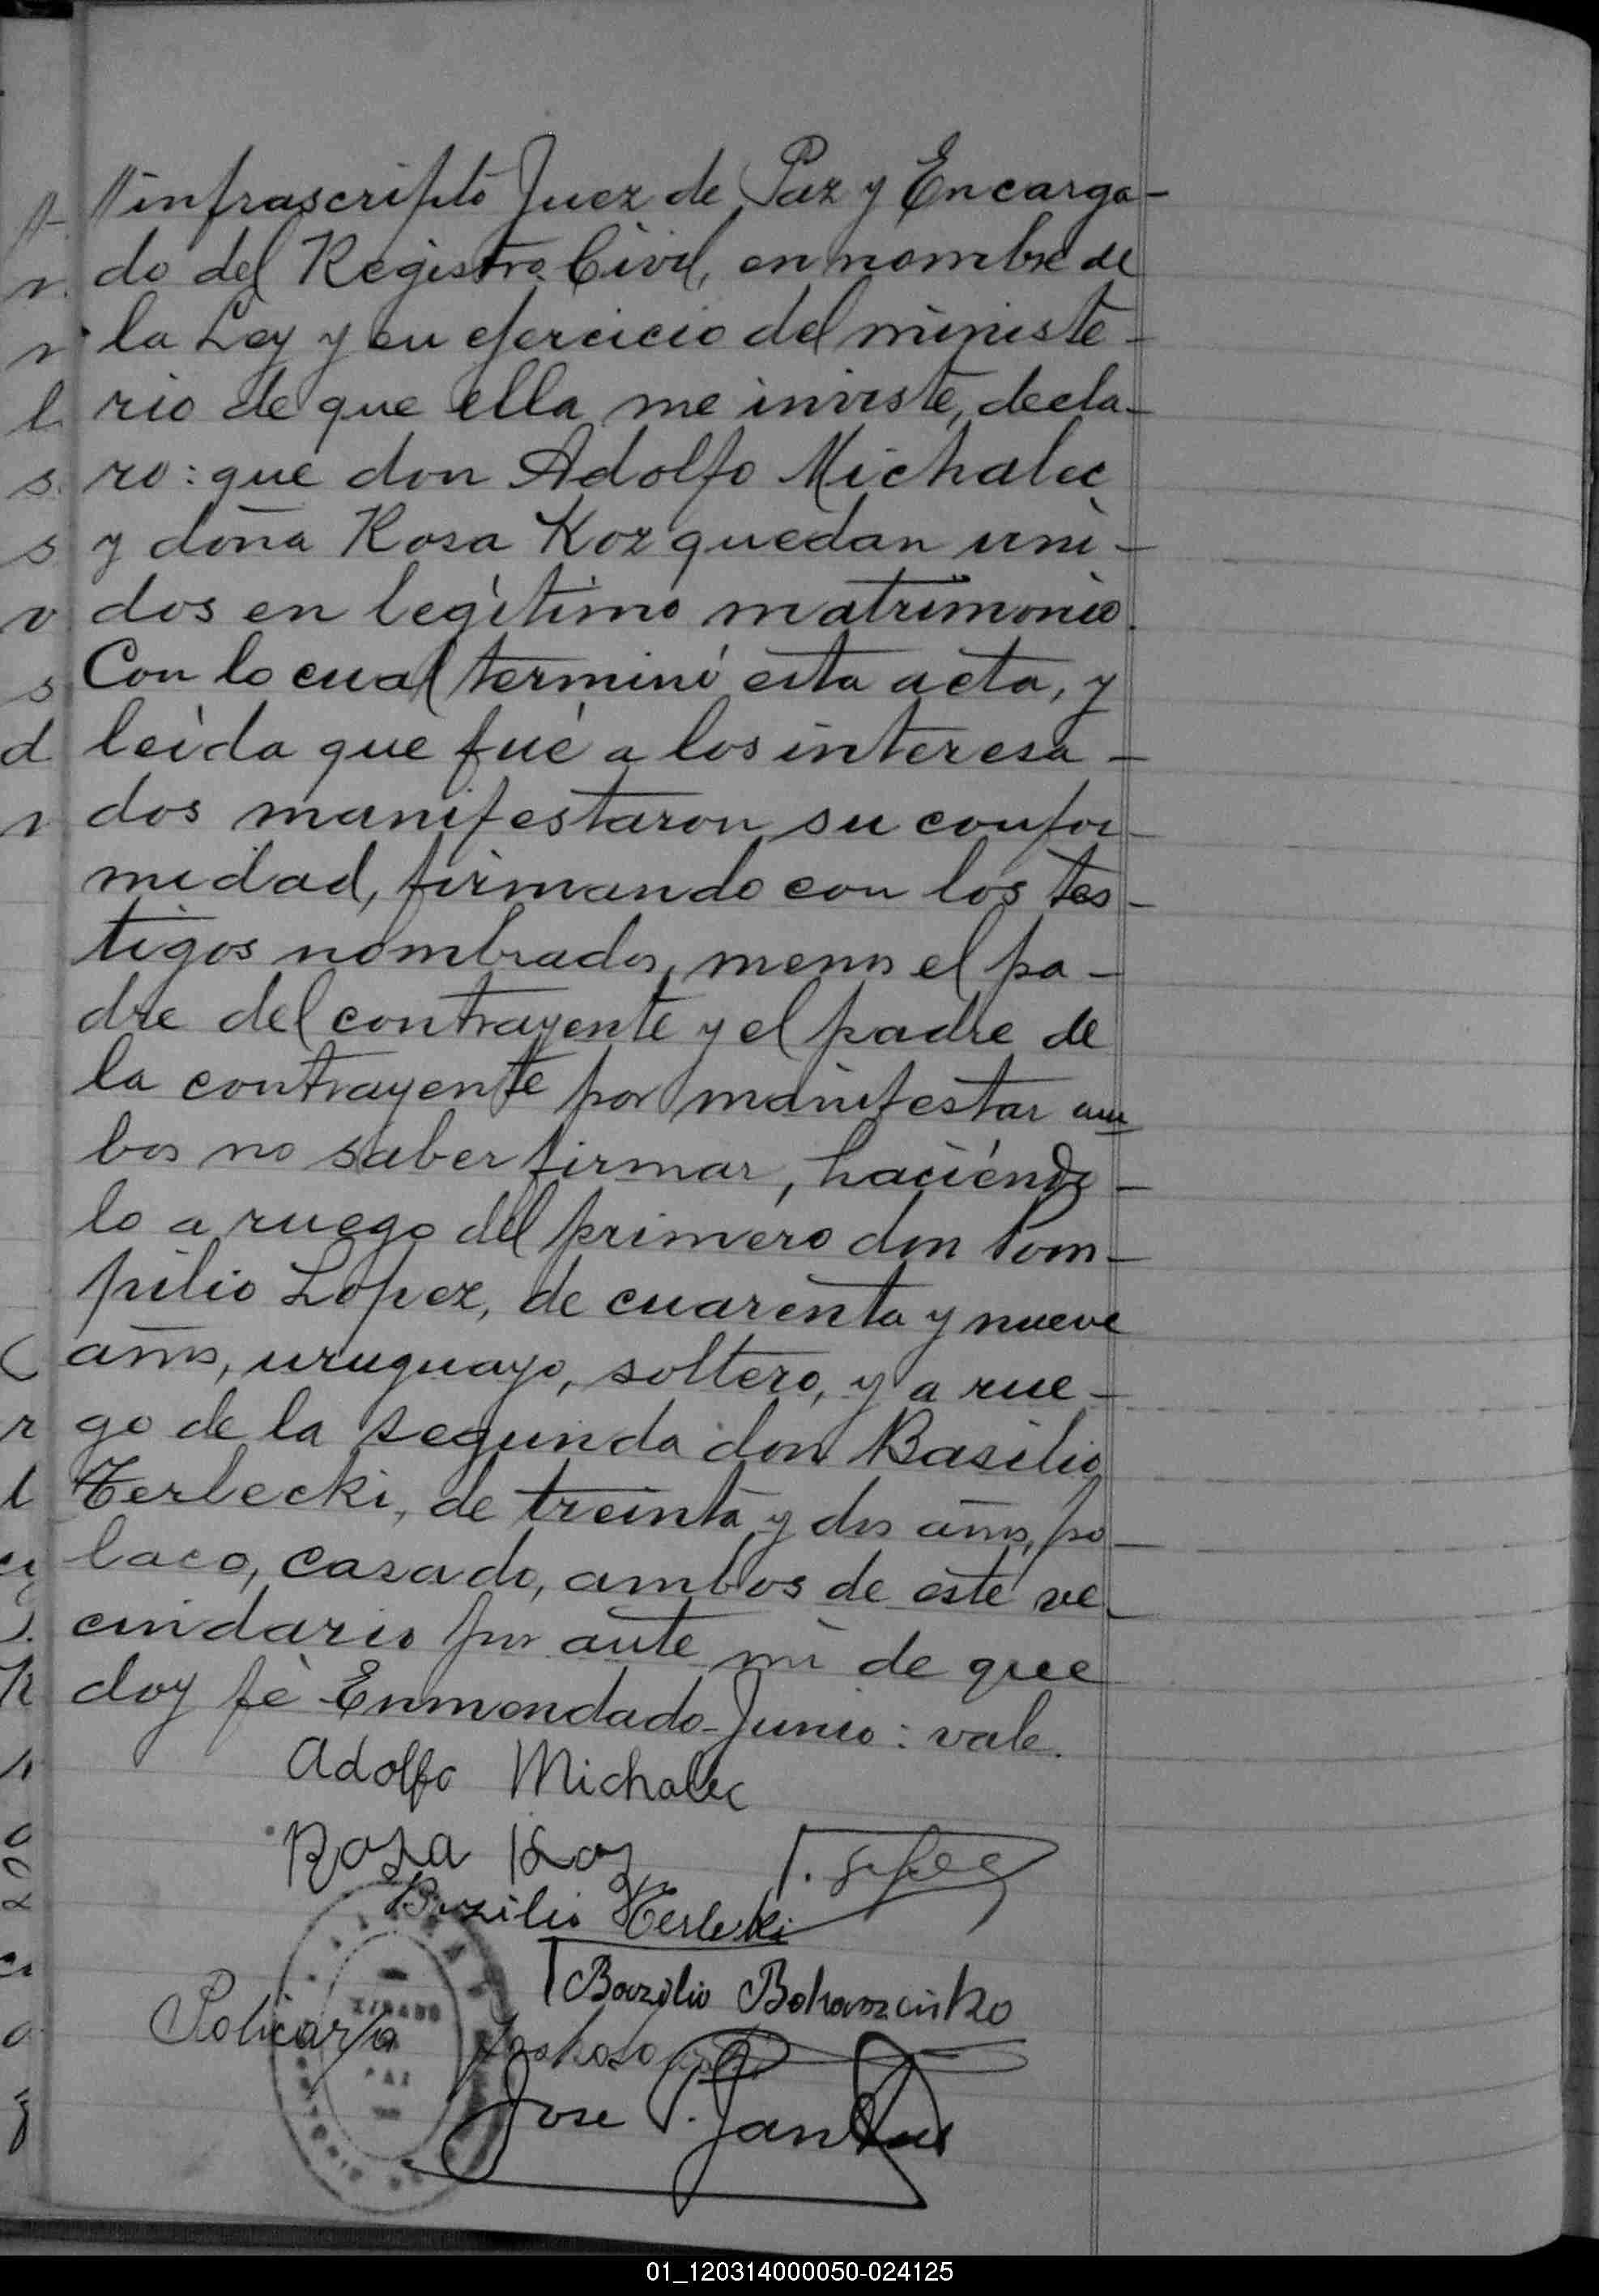 //infrascripto Juez de Paz y Encarga-
do del Registro Civil, en nombre de
la Ley y en ejercicio del ministe-
rio de que ella me inviste, decla-
ro: que don Adolfo Michalec
y doña Rosa Koz quedan uni-
dos en legítimo matrimonio.
Con lo cual terminé esta acta, y
leída que fué a los interesa-
dos manifestaron su confor-
midad, firmando con los tes-
tigos nombrados, menos el pa-
dre del contrayente y el padre de
la contrayente por manifestar am
bos no saber firmar, haciéndo-
lo a ruego del primero don Pom-
pilio López, de cuarenta y nueve
años, uruguayo, soltero, y a rue-
go de la segunda don Basilio
Terlecki, de treinta y dos años, po-
laco, casado, ambos de este ve-
cindario por ante mi de que
doy fè Enmendado-Junio: vale.
Adolfo Michalec
Rosa Koz
Bazilio Terlecki
Bazilio Bohaszenko
Policarpo
Jose P.
01_120314000050-024125